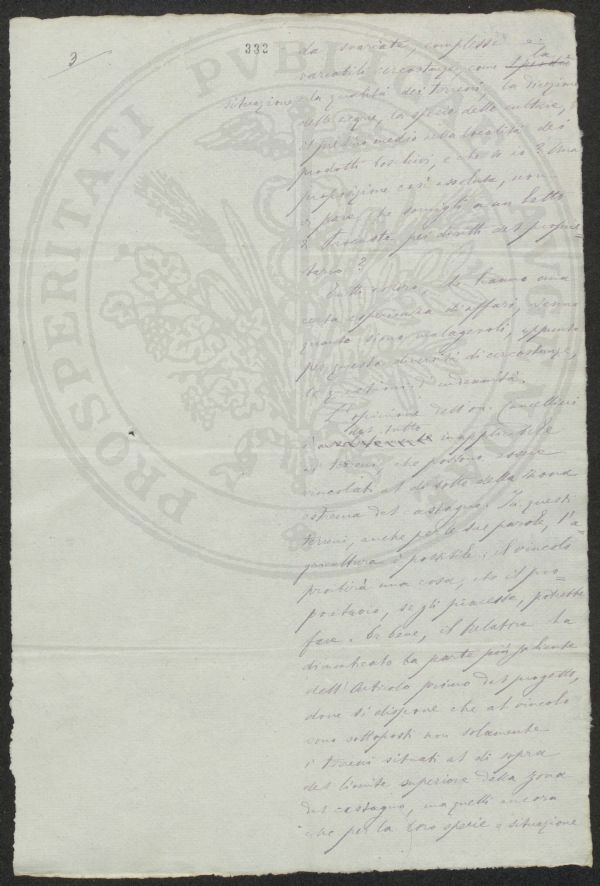 3
332
da svariate, complesse e
variabili circostanze, come la
situazione, la qualità dei terreni, la direzione
delle acque, la specie delle culture,
il prezzo medio nella località dei
prodotti boschivi, e che so io? Una
proposizione così assoluta, non
vi pare che somigli a un letto
di Procuste pei diritti del proprie-
tario?
Tutti coloro, che hanno una
certa esperienza di affari, sanno
quanto sieno malagevoli, appunto
per questa diversità di circostanze,
le quistioni d'indennità.
L'opinione dell'on. Cancellieri
del tutto
inapplicabile
ai terreni, che possono essere
vincolati al di sotto della zona
estrema del castagno. In questi
terreni, anche per le sue parole, l'a-
gricoltura è possibile: il vincolo
proibirà una cosa, che il pro-
prietario, se gli piacesse, potrebbe
fare. Or bene, il Relatore ha
dimenticato la parte più saliente
dell'Articolo primo del progetto,
dove si dispone che al vincolo
sono sottoposti non solamente
i terreni situati al di sopra
del limite superiore della zona
del castagno, ma quelli ancora
che per la loro specie e situazione
PROSPERITATI PVBLICAE AVGENDAE